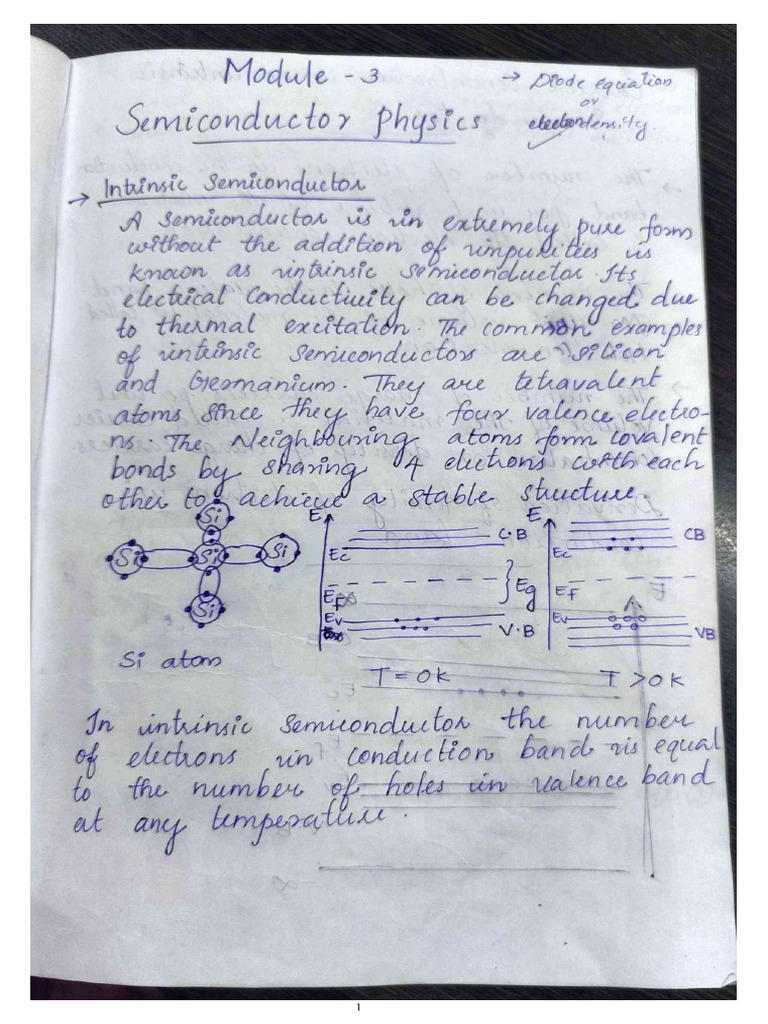 Module - 3
→ Diode equation
or
electrondensity.
Semiconductor physics
→ Intrinsic Semiconductor
A semiconductor is in extremely pure form
without the addition of impurities is
known as intrinsic semiconductor. Its
electrical conductivity can be changed due
to thermal excitation. The common examples
of intrinsic semiconductors are silicon
and Germanium. They are tetravalent
atoms since they have four valence electro-
ns. The Neighbouring atoms form covalent
bonds by sharing 4 elections with each
other to achieve a stable structure
Si
Si Si Si
Si
Si atom
E
C.B
Ec
Eg
EF
Ev
V.B
T = 0K
E
CB
Ec
EF
Ev
VB
T > 0K
In intrinsic semiconductor the number
of electrons in conduction band is equal
to the number of holes in valence band
at any temperature.
1